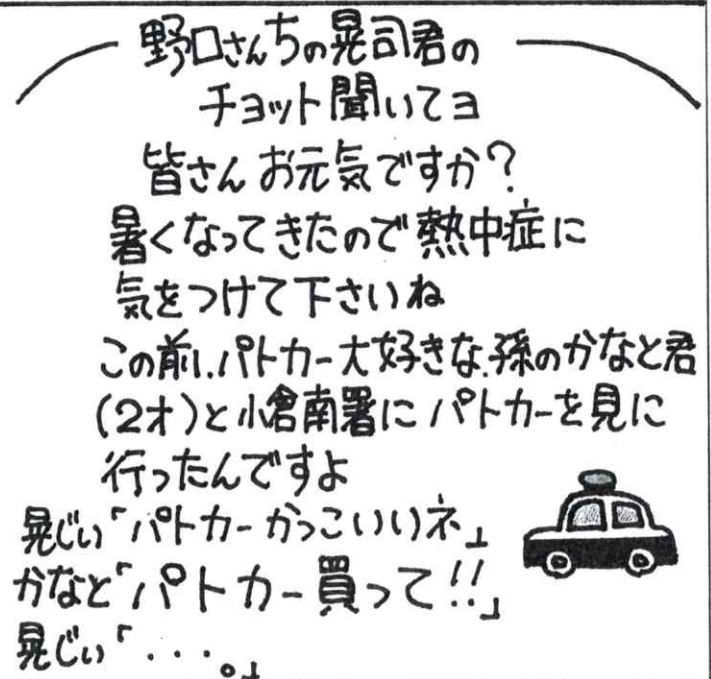 野口さんちの晃司君の
チョット聞いてヨ
皆さんお元気ですか?
暑くなってきたので熱中症に
気をつけて下さいね
この前、パトカー大好きな孫のかなと君
(2才)と小倉南署にパトカーを見に
行ったんですよ
晃じい「パトカーかっこいいネ」
かなと「パトカー買って!!」
晃じい「・・・。」